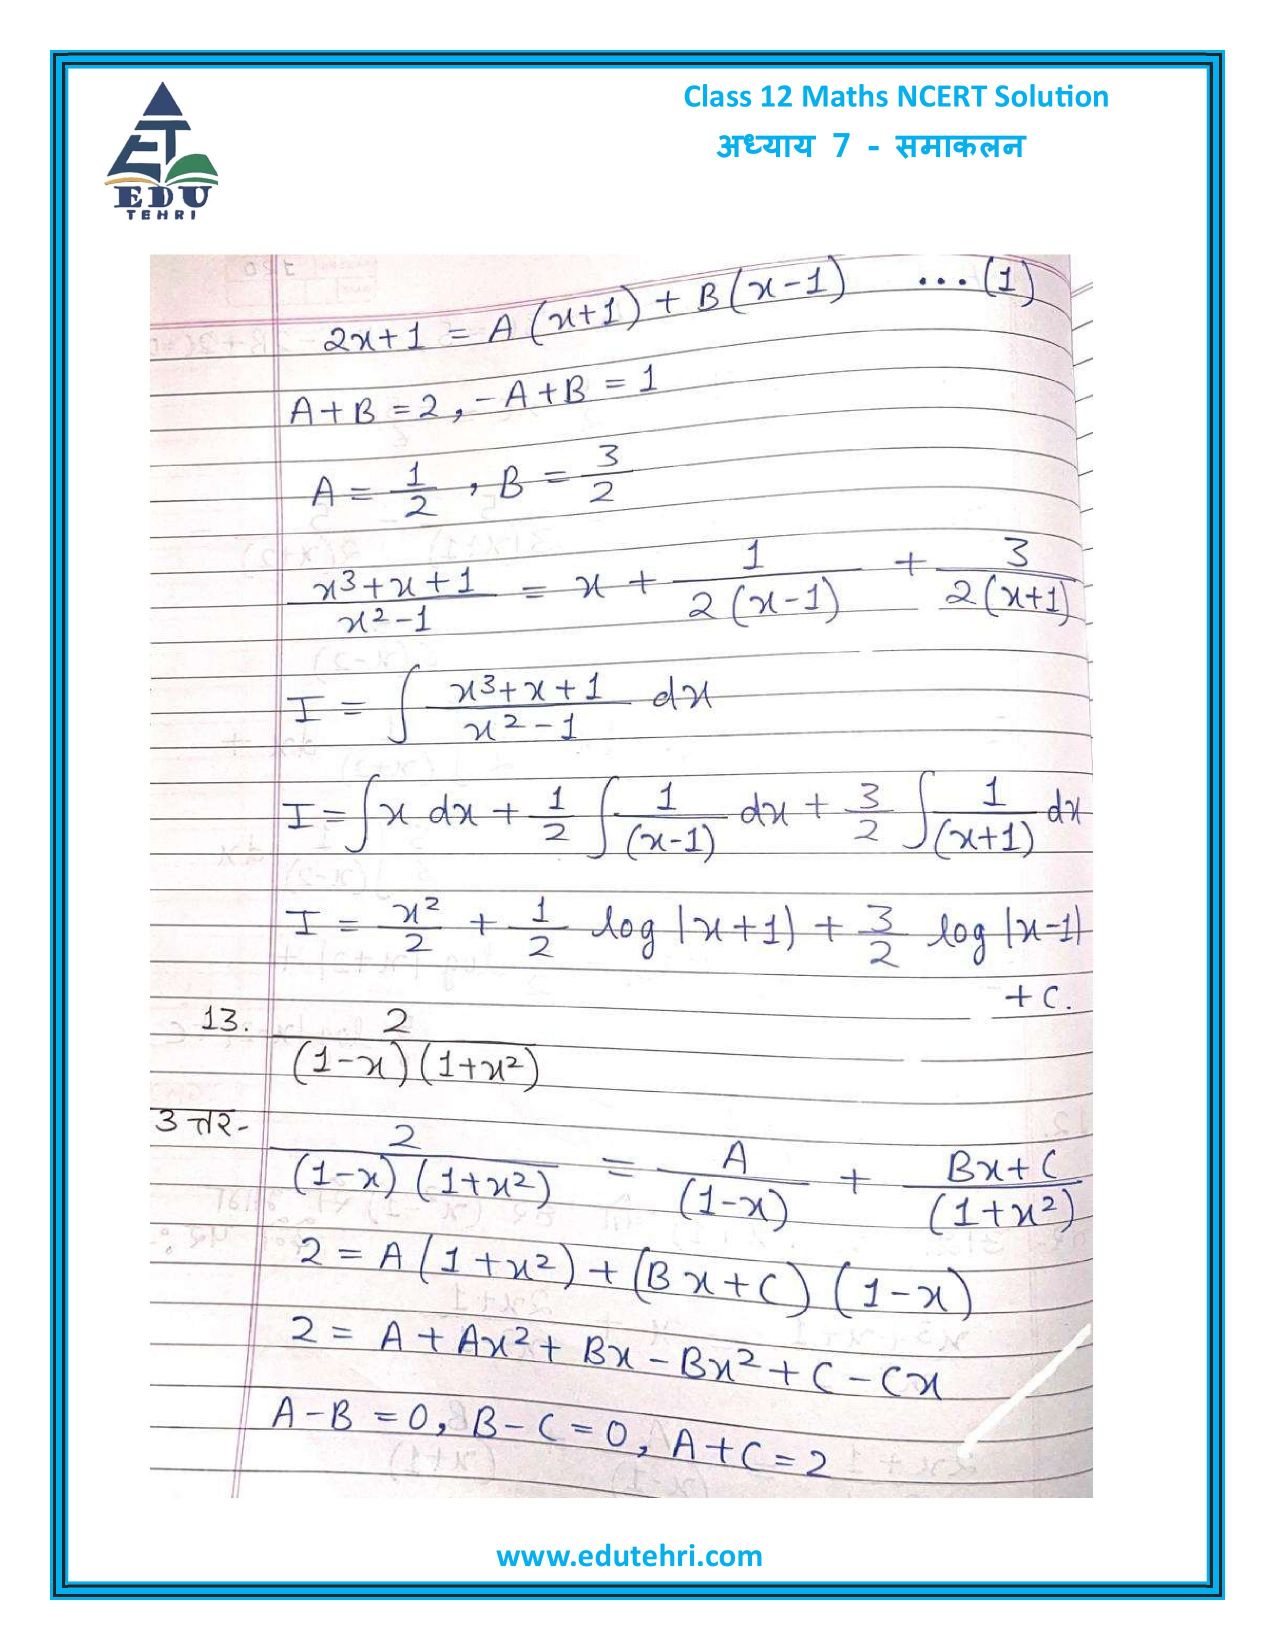 Class 12 Maths NCERT Solution
अध्याय 7 - समाकलन
EDU
TEHRI
2x+1 = A(x+1) + B(x-1) ...(1)
A+B = 2, -A+B = 1
A = 1/2, B = 3/2
x³+x+1/x²-1 = x + 1/2(x-1) + 3/2(x+1)
I = ∫ x³+x+1/x²-1 dx
I = ∫x dx + 1/2 ∫ 1/(x-1) dx + 3/2 ∫ 1/(x+1) dx
I = x²/2 + 1/2 log|x+1| + 3/2 log|x-1|
+ C.
13. 2/(1-x)(1+x²)
उत्तर- 2/(1-x)(1+x²) = A/(1-x) + Bx+C/(1+x²)
2 = A(1+x²) + (Bx+C)(1-x)
2 = A + Ax² + Bx - Bx² + C - Cx
A-B = 0, B-C = 0, A+C = 2
www.edutehri.com